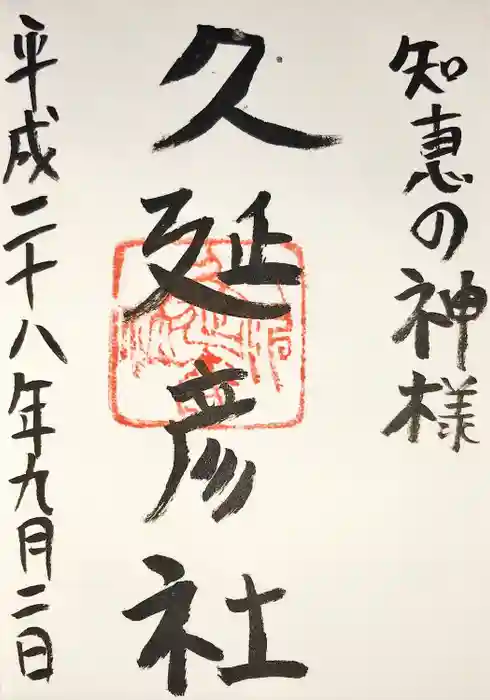 知恵の神様
久延彦社
平成二十八年九月二日